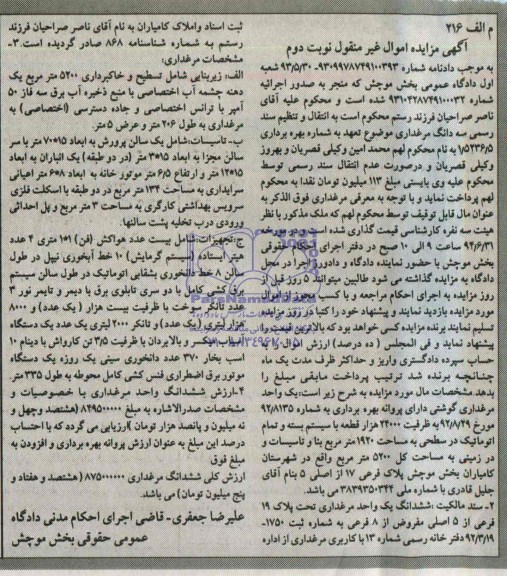 م الف ۲۱۶
آگهی مزایده اموال غیر منقول نوبت دوم
به موجب دادنامه شماره ۹۳۰۹۹۷۸۷۴۹۱۰۰۳۹۳-۹۳/۵/۳۰ شعبه
اول دادگاه عمومی بخش موچش که منجر به صدور اجرائیه
شماره ۹۳۱۰۴۲۸۷۴۹۱۰۰۰۳۲ شده است و محکوم علیه آقای
ناصر صراحیان فرزند رستم محکوم است به انتقال و تنظیم سند
رسمی سه دانگ مرغداری موضوع تعهد به شماره بهره برداری
به نام محکوم لهم محمد امین وکیلی قصریان و بهروز
وکیلی قصریان و درصورت عدم انتقال سند رسمی توسط
محکوم علیه وی بایستی مبلغ ۱۱۳ میلیون تومان نقدا به محکوم
لهم پرداخت نماید و با توجه به معرفی مرغداری فوق الذکر به
عنوان مال قابل توقیف توسط محکوم لهم که ملک مذکور با نظر
هیئت سه نفره کارشناسی قیمت گذاری شده است و در مورخه
۹۴/۶/۳۱ ساعت ۹ الی ۱۰ صبح در دفتر اجرای احکام حقوقی
بخش موچش با حضور نماینده دادگاه و دادورز اجرا در محل
دادگاه به مزایده گذاشته می شود طالبین میتوانند ۵ روز قبل از
روز مزایده به اجرای احکام مراجعه و با کسب مجوز از اموال
مورد مزایده بازدید نمایند و پیشنهاد خود را کتبا در روز مزایده
تسلیم نمایند برنده مزایده کسی خواهد بود که بالاترین قیمت را
پیشنهاد نماید و فی المجلس (ده درصد) ارزش اموال را به
حساب سپرده دادگستری واریز و حداکثر ظرف مدت یک ماه
چنانچه برنده شد ترتیب پرداخت مابقی مبلغ را
بدهد مشخصات مال مورد مزایده به شرح زیر است: یک واحد
مرغداری گوشتی دارای پروانه بهره برداری به شماره ۹۲/۸۱۳۵
مورخ ۹۲/۸/۲۹ به ظرفیت ۲۴۰۰۰ هزار قطعه با سیستم بسته و تمام
اتوماتیک در سطحی به مساحت ۱۹۲۰ متر مربع بنا و تاسیسات و
در زمینی به مساحت کل ۵۲۰۰ متر مربع واقع در شهرستان
کامیاران بخش موچش پلاک فرعی ۱۷ از اصلی ۵ بنام آقای
جلیل قادری با شماره ملی ۳۸۳۹۳۵۰۳۴۲ می باشد.
۲- سند مالکیت: ششدانگ یک واحد مرغداری تحت پلاک ۱۹
فرعی از ۵ اصلی مفروض از ۸ فرعی به شماره ثبت ۱۷۵۰-
۹۲/۳/۱۹ دفتر خانه رسمی شماره ۱۳ با کاربری مرغداری از اداره
ثبت اسناد واملاک کامیاران به نام آقای ناصر صراحیان فرزند
رستم به شماره شناسنامه ۸۶۸ صادر گردیده است. ۳-
مشخصات مرغداری:
الف: زیربنایی شامل تسطیح و خاکبرداری ۵۲۰۰ متر مربع یک
دهنه چشمه آب اختصاصی با منبع ذخیره آب برق سه فاز ۵۰
آمپر با ترانس اختصاصی و جاده دسترسی (اختصاصی) به
مرغداری به طول ۲۰۶ متر و عرض ۵ متر.
ب- تاسیسات: شامل یک سالن پرورش به ابعاد ۱۵*۷۰ متر با سر
سالن مجزا به ابعاد ۱۵*۳ متر (در دو طبقه) یک انباران به ابعاد
۱۵*۱۲ متر و ارتفاع ۶/۵ متر موتور خانه به ابعاد ۸*۶ متر اعیانی
سرایداری به مساحت ۱۳۴ متر مربع در دو طبقه با اسکلت فلزی
سرویس بهداشتی کارگری به مساحت ۳ متر مربع و پل احداثی
ورودی درب تخلیه پشت سالنها.
ج: تجهیزات: شامل بیست عدد هواکش (فن) ۱*۱ متری ۴ عدد
هیتر ایستاده (سیستم گرمایش) ۱۰ خط آبخوری نیپل در طول
سالن ۸ خط دانخوری بشقابی اتوماتیک در طول سالن سیستم
برق کشی کامل با دو سری تابلوی برق با دیمر و تایمر نور ۳
عدد تانکر سوخت با ظرفیت بیست هزار (یک عدد) و ۸۰۰۰
هزار لیتری (یک عدد) و تانکر ۲۰۰۰ لیتری یک عدد یک دستگاه
آسیاب میکسر و بالابردان با ظرفیت ۳/۵ تن کارواش با دینام ۱۰
اسب بخار ۳۷۰ عدد دانخوری سینی یک روزه یک دستگاه
موتور برق اضطراری فنس کشی کامل محوطه به طول ۳۳۵ متر
۴- ارزش ششدانگ واحد مرغداری با خصوصیات و
مشخصات صدرالاشاره به مبلغ ۸۴۹۵۰۰۰۰۰۰ (هشتصد وچهل و
نه میلیون و پانصد هزار تومان) ارزیابی می گردد که با احتساب
درصد این مبلغ به عنوان ارزش پروانه بهره برداری و افزودن به
مبلغ فوق
ارزش کلی ششدانگ مرغداری ۸۷۵۰۰۰۰۰۰۰ (هشتصد و هفتاد و
پنج میلیون تومان) می باشد.
علیرضا جعفری- قاضی اجرای احکام مدنی دادگاه
عمومی حقوقی بخش موچش